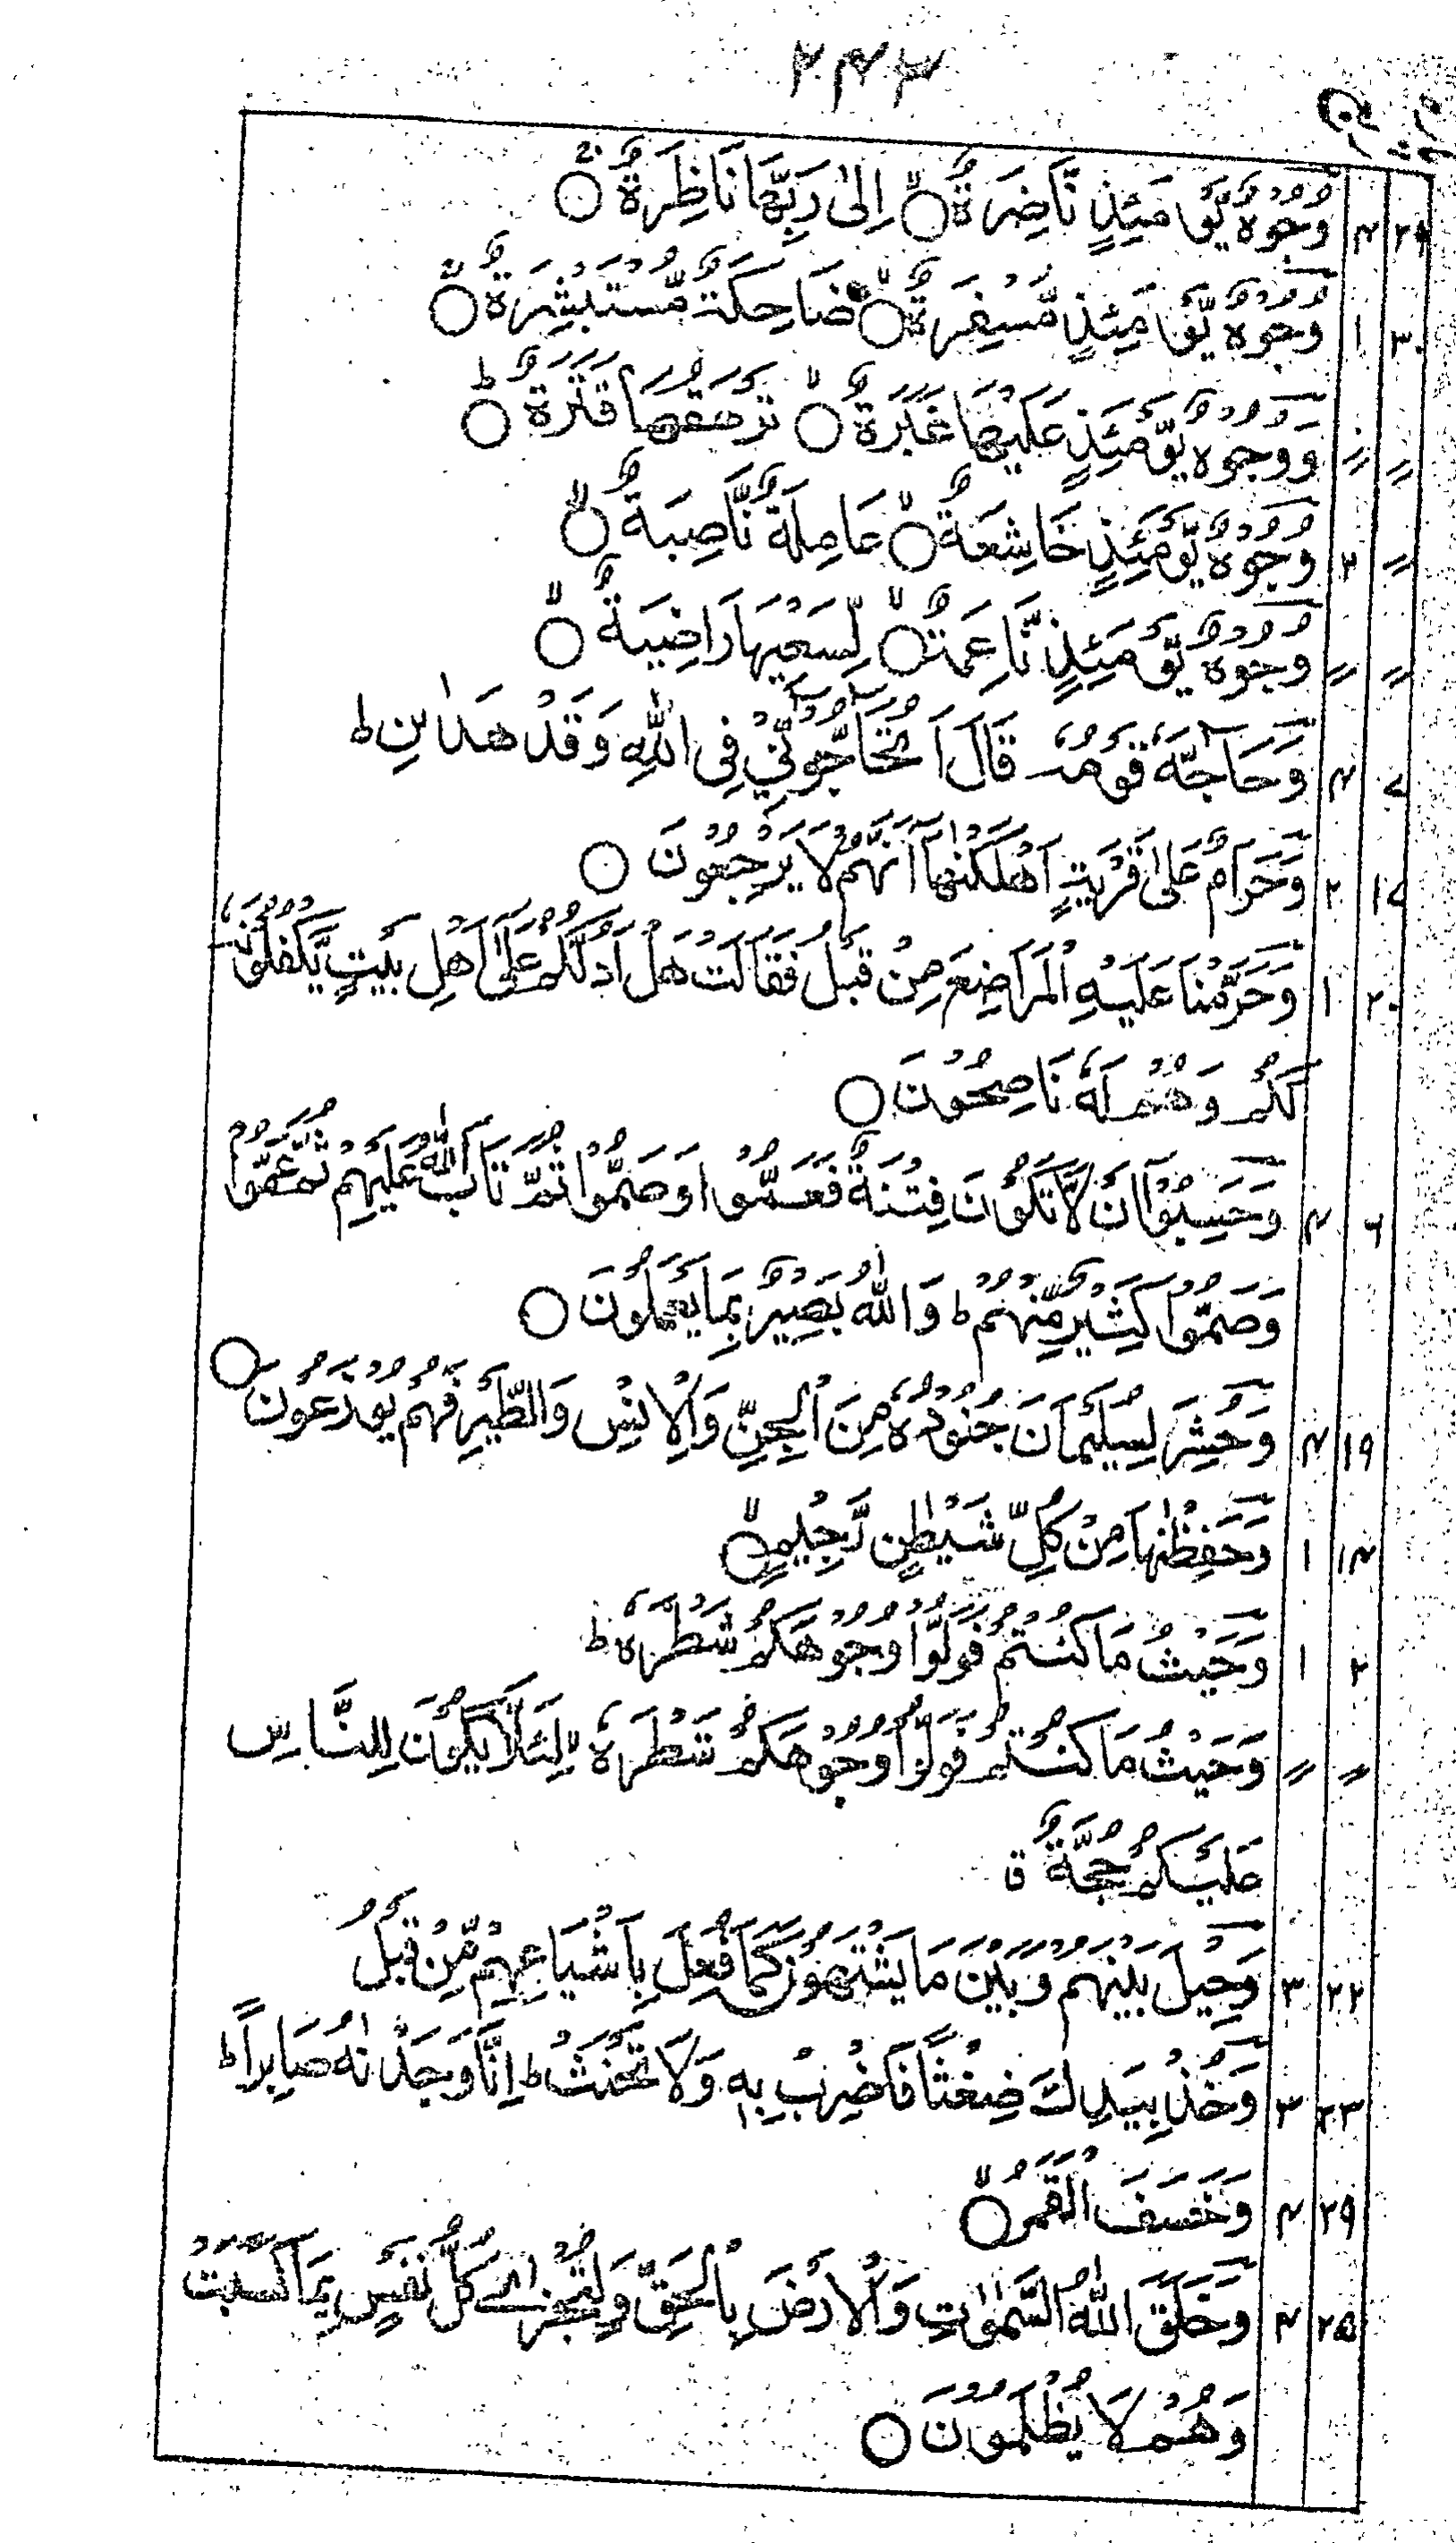 ۲۴۳
۲۹ ۴ وُجُوْهٌ يَّوْمَئِذٍ نَّاضِرَةٌ ۙ○ اِلٰى رَبِّهَا نَاظِرَةٌ ۚ○
۳۰ ۱ وُجُوْهٌ يَّوْمَئِذٍ مُّسْفِرَةٌ ۙ○ ضَاحِكَةٌ مُّسْتَبْشِرَةٌ ۚ○
〃 〃 وَوُجُوْهٌ يَّوْمَئِذٍ عَلَيْهَا غَبَرَةٌ ۙ○ تَرْهَقُهَا قَتَرَةٌ ؕ○
〃 ۳ وُجُوْهٌ يَّوْمَئِذٍ خَاشِعَةٌ ۙ○ عَامِلَةٌ نَّاصِبَةٌ ۙ○
〃 〃 وُجُوْهٌ يَّوْمَئِذٍ نَّاعِمَةٌ ۙ○ لِّسَعْيِهَا رَاضِيَةٌ ۙ○
۷ ۴ وَحَآجَّهٗ قَوْمُهٗ قَالَ اَتُحَآجُّوْٓنِّيْ فِى اللّٰهِ وَقَدْ هَدٰىنِ ؕ
۱۷ ۲ وَحَرَامٌ عَلٰى قَرْيَةٍ اَهْلَكْنٰهَآ اَنَّهُمْ لَا يَرْجِعُوْنَ ○
۲۰ ۱ وَحَرَّمْنَا عَلَيْهِ الْمَرَاضِعَ مِنْ قَبْلُ فَقَالَتْ هَلْ اَدُلُّكُمْ عَلٰٓى اَهْلِ بَيْتٍ يَّكْفُلُوْنَهٗ
لَكُمْ وَهُمْ لَهٗ نَاصِحُوْنَ ○
۶ ۴ وَحَسِبُوْٓا اَنْ لَّا تَكُوْنَ فِتْنَةٌ فَعَمُوْا وَصَمُّوْا ثُمَّ تَابَ اللّٰهُ عَلَيْهِمْ ثُمَّ عَمُوْا
وَصَمُّوْا كَثِيْرٌ مِّنْهُمْ ؕ وَاللّٰهُ بَصِيْرٌۢ بِمَا يَعْمَلُوْنَ ○
۱۹ ۴ وَحُشِرَ لِسُلَيْمَانَ جُنُوْدُهٗ مِنَ الْجِنِّ وَالْاِنْسِ وَالطَّيْرِ فَهُمْ يُوْزَعُوْنَ ○
۱۴ ۱ وَحَفِظْنٰهَا مِنْ كُلِّ شَيْطٰنٍ رَّجِيْمٍ ۙ○
۲ ۱ وَحَيْثُ مَا كُنْتُمْ فَوَلُّوْا وُجُوْهَكُمْ شَطْرَهٗ ؕ
〃 〃 وَحَيْثُ مَا كُنْتُمْ فَوَلُّوْا وُجُوْهَكُمْ شَطْرَهٗ ۙ لِئَلَّا يَكُوْنَ لِلنَّاسِ
عَلَيْكُمْ حُجَّةٌ ق
۲۲ ۳ وَحِيْلَ بَيْنَهُمْ وَبَيْنَ مَا يَشْتَهُوْنَ كَمَا فُعِلَ بِاَشْيَاعِهِمْ مِّنْ قَبْلُ
۲۳ ۳ وَخُذْ بِيَدِكَ ضِغْثًا فَاضْرِبْ بِّهٖ وَلَا تَحْنَثْ ؕ اِنَّا وَجَدْنٰهُ صَابِرًا ؕ
۲۹ ۴ وَخَسَفَ الْقَمَرُ ۙ○
۲۵ ۴ وَخَلَقَ اللّٰهُ السَّمٰوٰتِ وَالْاَرْضَ بِالْحَقِّ وَلِتُجْزٰى كُلُّ نَفْسٍۢ بِمَا كَسَبَتْ
وَهُمْ لَا يُظْلَمُوْنَ ○